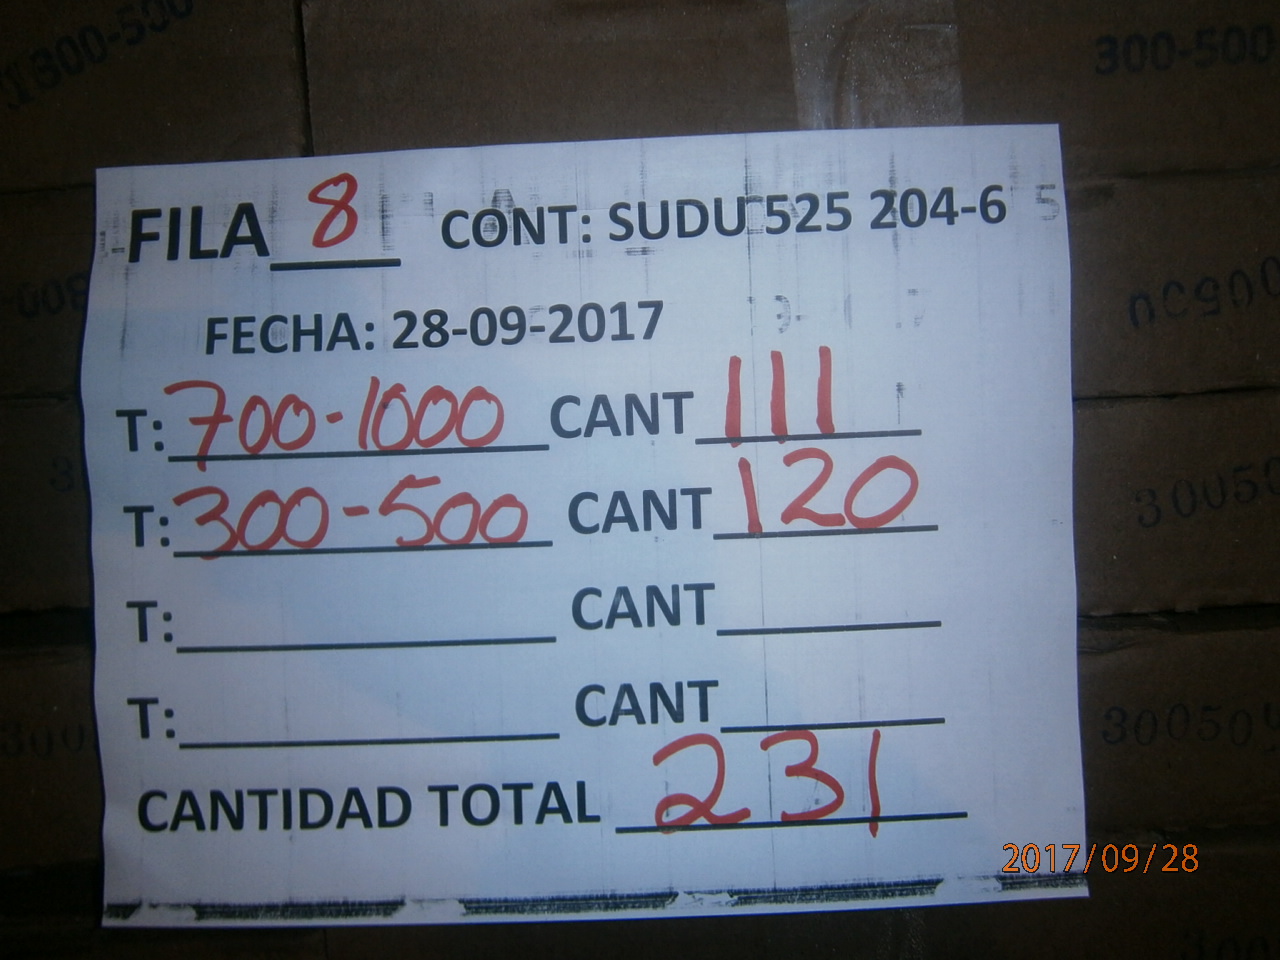 1300-500
300-500
FILA 8 CONT: SUDU 525 204-6
FECHA: 28-09-2017
T: 700-1000 CANT 111
T: 300-500 CANT 120
T: CANT
T: CANT
CANTIDAD TOTAL 231
300500
2017/09/28